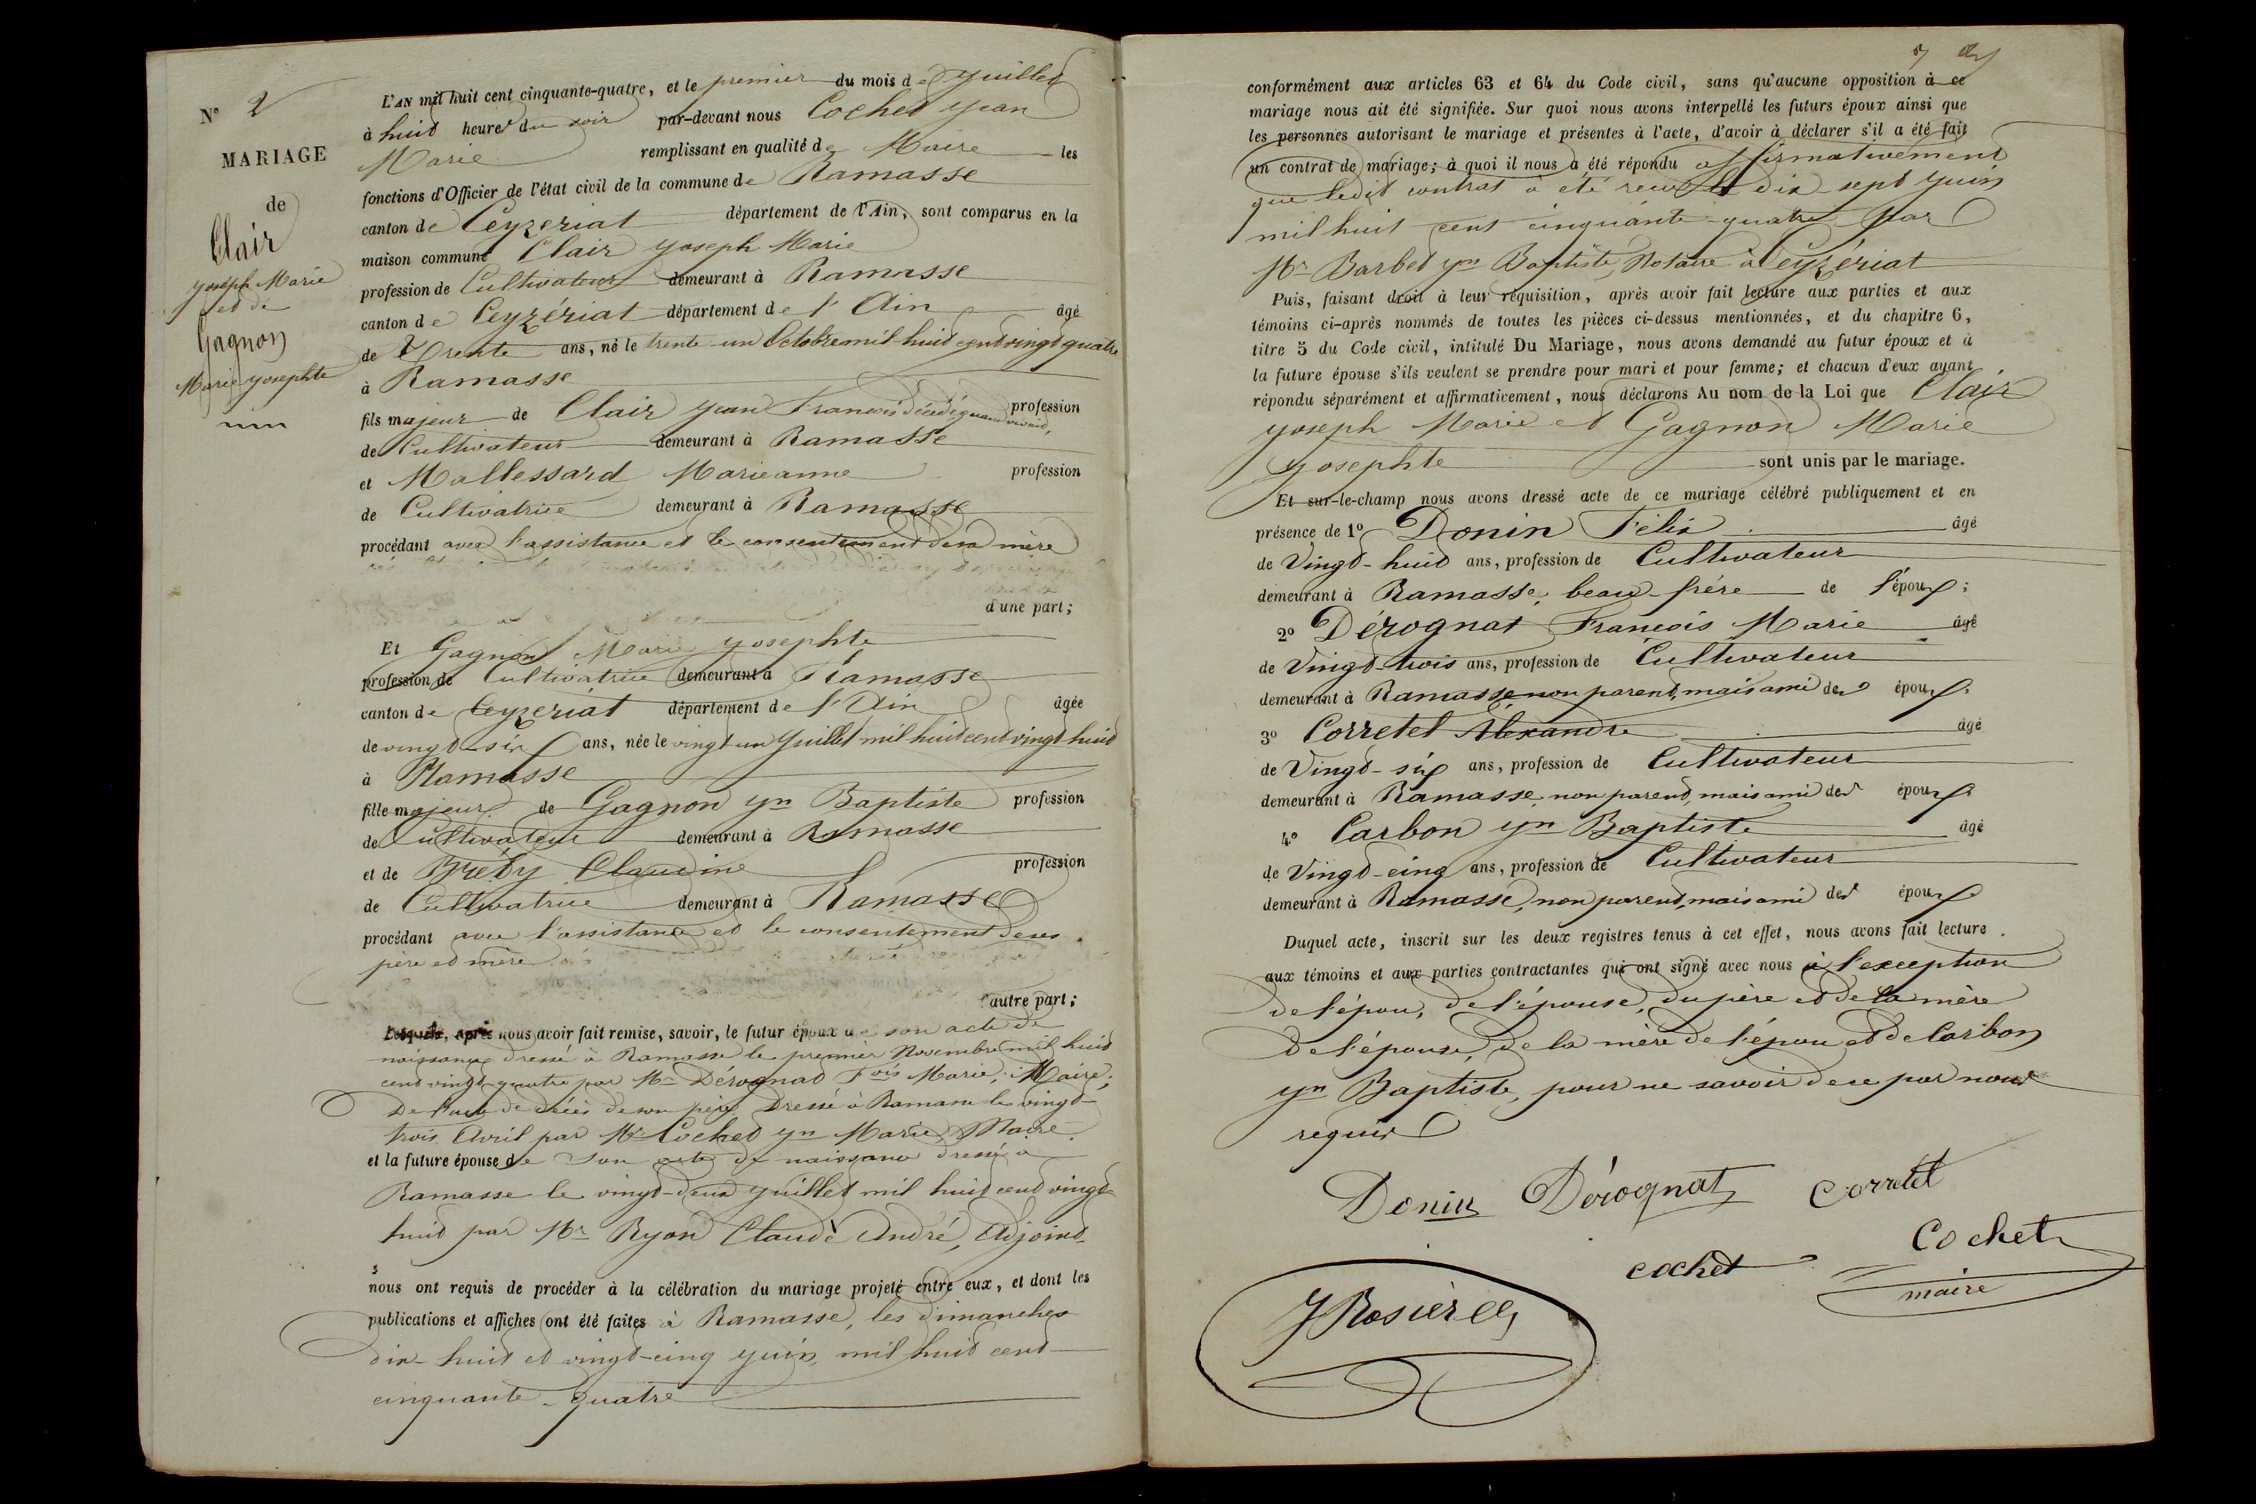 N° 2
MARIAGE
de
Clair
Joseph Marie
et de
Gagnon
Marie Josephte
L'AN mil huit cent cinquante-quatre, et le premier du mois de Juillet
à huit heures du soir par-devant nous Cochet Jean
Marie remplissant en qualité de Maire les
fonctions d'Officier de l'état civil de la commune de Ramasse
canton de Ceyzeriat département de l'Ain, sont comparus en la
maison commune Clair Joseph Marie
profession de Cultivateur demeurant à Ramasse
canton de Ceyzériat département de l'Ain âgé
de Trente ans, né le trente-un Octobre mil huit cent vingt quatre
à Ramasse
fils majeur de Clair Jean François décédé quand vivait, profession
de Cultivateur demeurant à Ramasse
et Mallessard Marieanne profession
de Cultivatrice demeurant à Ramasse
procédant avec l'assistance et le consentement de sa mère
d'une part;
Et Gagnon Marie Josephte
profession de Cultivatrice demeurant à Ramasse
canton de Ceyzeriat département de l'Ain âgée
de vingt-six ans, née le vingt un Juillet mil huit cent vingt huit
à Ramasse
fille majeure de Gagnon Jn Baptiste profession
de Cultivateur demeurant à Ramasse
et de Claudine profession
de Cultivatrice demeurant à Ramasse
procédant avec l'assistance et le consentement de ses
père et mère
autre part;
Lesquels, après nous avoir fait remise, savoir, le futur époux de son acte de
naissance dressé à Ramasse le premier Novembre mil huit
cent vingt-quatre par Mr Dérognat Fois Marie, Maire;
De l'acte de décès de son père dressé à Ramasse le vingt-
trois Avril par Mr Cochet Jn Marie Maire
et la future épouse de son acte de naissance dressé à
Ramasse le vingt-deux Juillet mil huit cent vingt
huit par Mr Ryon Claude André, Adjoint
nous ont requis de procéder à la célébration du mariage projeté entre eux, et dont les
publications et affiches ont été faites à Ramasse, les dimanches
dix-huit et vingt-cinq Juin mil huit cent
cinquante-quatre
conformément aux articles 63 et 64 du Code civil, sans qu'aucune opposition à ce
mariage nous ait été signifiée. Sur quoi nous avons interpellé les futurs époux ainsi que
les personnes autorisant le mariage et présentes à l'acte, d'avoir à déclarer s'il a été fait
un contrat de mariage; à quoi il nous a été répondu affirmativement
que ledit contrat a été recu le dix-sept Juin
mil huit cent cinquante-quatre par
Mr Barbet Jn Baptiste, Notaire à Ceyzériat
Puis, faisant droit à leur réquisition, après avoir fait lecture aux parties et aux
témoins ci-après nommés de toutes les pièces ci-dessus mentionnées, et du chapitre 6,
titre 5 du Code civil, intitulé Du Mariage, nous avons demandé au futur époux et à
la future épouse s'ils veulent se prendre pour mari et pour femme; et chacun d'eux ayant
répondu séparément et affirmativement, nous déclarons Au nom de la Loi que Clair
Joseph Marie et Gagnon Marie
Josephte sont unis par le mariage.
Et sur-le-champ nous avons dressé acte de ce mariage célébré publiquement et en
présence de 1° Donin Félix âgé
de Vingt-huit ans, profession de Cultivateur
demeurant à Ramasse, beau-frére de l'époux;
2° Dérognat François Marie âgé
de Vingt-trois ans, profession de Cultivateur
demeurant à Ramasse non parent, mais ami des époux;
3° Corretel Alexandre âgé
de Vingt-six ans, profession de Cultivateur
demeurant à Ramasse non parent, mais ami des époux
4° Carbon Jn Baptiste âgé
de Vingt-cinq ans, profession de Cultivateur
demeurant à Ramasse, non parent, mais ami des époux
Duquel acte, inscrit sur les deux registres tenus à cet effet, nous avons fait lecture
aux témoins et aux parties contractantes qui ont signé avec nous à l'exception
de l'époux, de l'épouse, du père et de la mère
De l'épouse, de la mère de l'époux et de Carbon
Jn Baptiste, pour ne savoir de ce par nous
requis
Donin Dérognat Corretel
cochet Cochet
maire
J Rosier